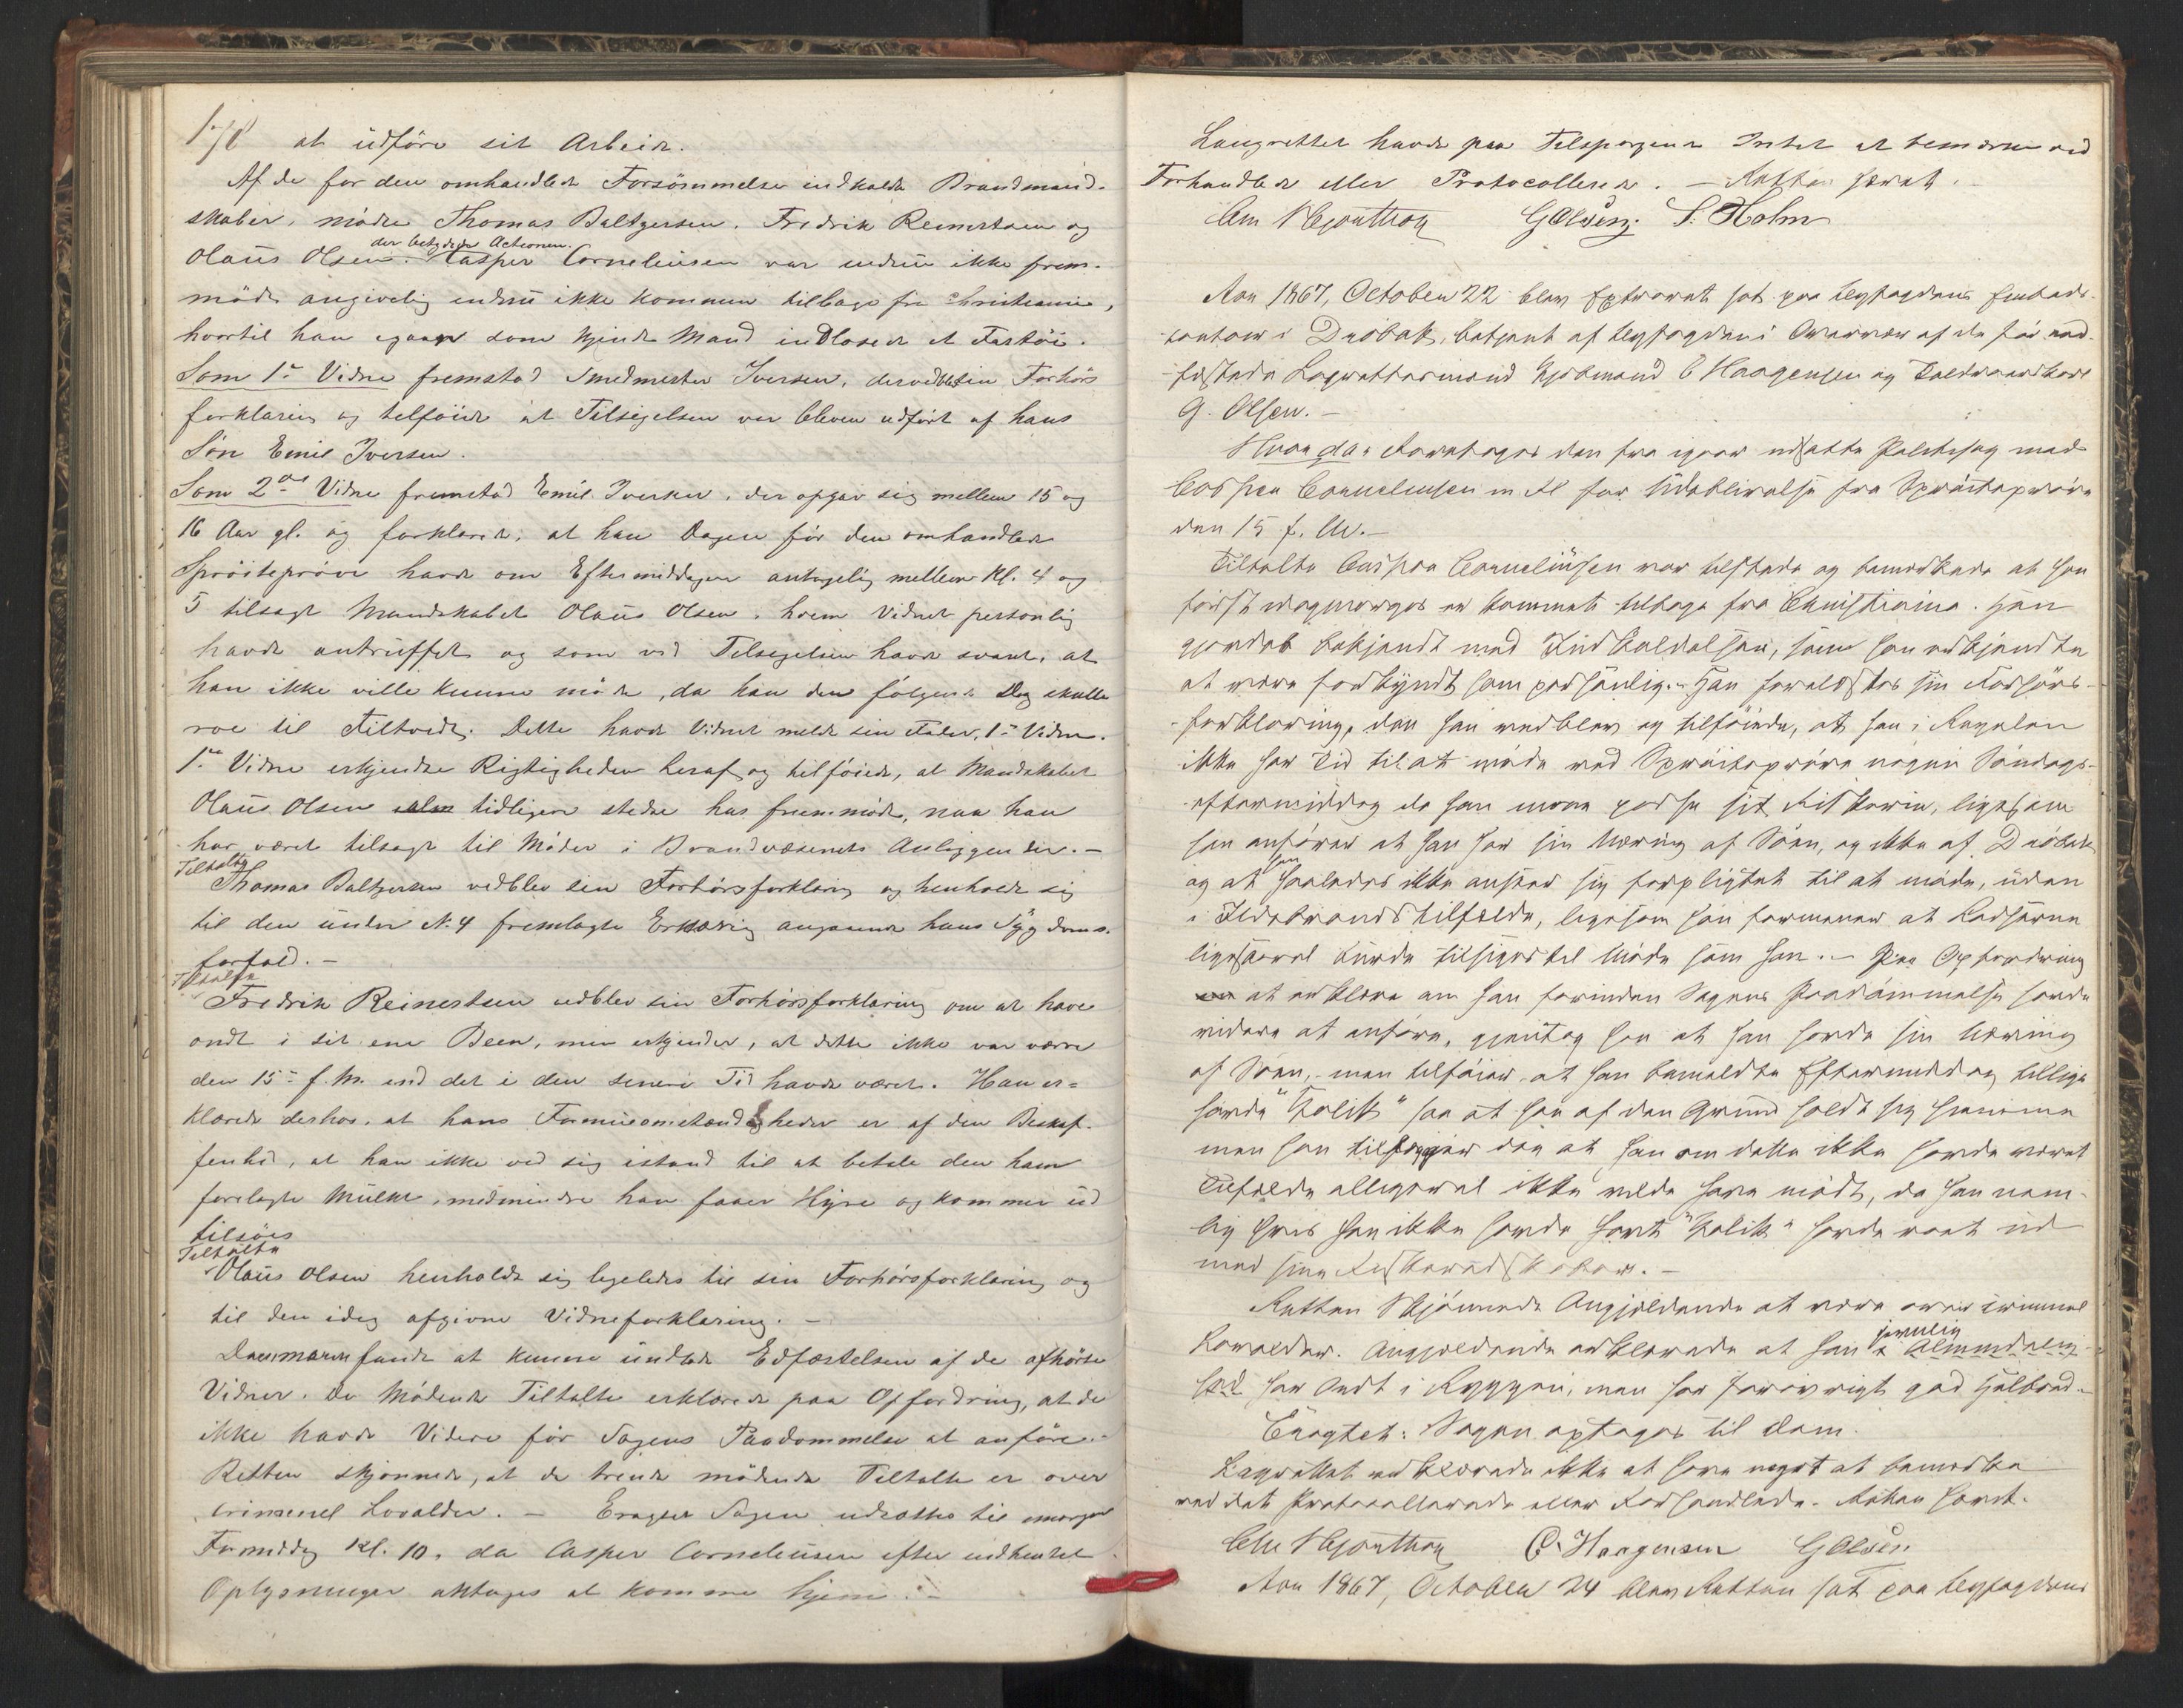 178
at udføre sit Arbeide.
Af de for den omhandlede Forsömmelse indkaldte Brandmand-
skaber, mödte Thomas Baltzersen, Fredrik Reinertsen og
der betydede Actionen.
Olaus Olsen. Casper Corneliusen var endnu ikke frem-
mödt angivelig endnu ikke kommen tilbage fra Christiania,
hvortil han igaar som kjendt Mand indlodsede et Fartöi.
Som 1ste Vidne fremstod Smedmester Iversen, der vedblev sin Forhörs
forklaring og tilföiede at Tilsigelsen var bleven udfört af hans
Sön Emil Iversen.
Som 2det Vidne fremstod Emil Iversen, der opgav sig mellem 15 og
16 Aar gl. og forklarede, at han Dagen för den omhandlede
Spröiteprøve havde om Eftermiddagen antagelig mellem Kl. 4 og
5 tilsagt Mandskabet Olaus Olsen, hvem Vidnet personlig
havde antruffet og som ved Tilsigelsen havde svaret, at
han ikke ville kunne möde, da han den fölgende Dag skulle
roe til Filtvedt. Dette havde Vidnet meldt sin Fader, 1ste Vidne.
1ste Vidne erkjendte Rigtigheden heraf og tilföiede, at Mandskabet
Olaus Olsen tidligere stedse har fremmödt, naar han
har været tilsagt til Möder i Brandvæsenets Anliggender. -
Tiltalte
Thomas Baltzersen vedblev sin Forhörsforklaring og henholdt sig
til den under N. 4 fremlagte Erklæring angaaende hans Sygdoms-
forfald. -
Tiltalte
Fredrik Reinertsen vedblev sin Forhörsforklaring om at have
ondt i sit ene Been, men erkjender, at dette ikke var værre
den 15de f. M. end det i den senere Tid havde været. Han er-
klærede derhos, at hans Formuesomstændigheder er af den Beskaf-
fenhed, at han ikke ved sig istand til at betale den ham
forelagte Mulkt, medmindre han faaer Hyre og kommer ud
tilsöes
Tiltalte
Olaus Olsen henholdt sig ligeledes til sin Forhörsforklaring og
til den idag afgivne Vidneforklaring. -
Dommeren fandt at kunne undlade Edfæstelsen af de afhörte
Vidner. De Mödende Tiltalte erklærede paa Opfordring, at de
ikke havde Videre för Sagens Paadömmelse at anföre. -
Retten skjönnede, at de trende mödende Tiltalte er over
criminel Lavalder. - Eragtet Sagen udsættes til imorgen
Formiddag Kl. 10, da Casper Corneliusen efter indhentet
Oplysninger antages at komme hjem. -
Laugrettet havde paa Tilspörgende Intet at bemærke ved
Forhandlede eller Protocollerede. - Retten hævet. -
G Olsen. S. Holm
Aar 1867, October 22 blev Extraret sat paa Byfogdens Embeds-
contoir i Dröbak, betjent af Byfogden i Overvær af de för ed-
fæstede Lagrettesmænd Kjöbmand C Haagensen og Toldroerskarl
G. Olsen. -
Hvor da: Foretages den fra igaar udsatte Politisag mod
Casper Corneliusen m Fl for Udeblivelse fra Spröiteprøve
den 15 f. M. -
Tiltalte Casper Corneliusen var tilstede og bemærkede at han
först idagmorges er kommet tilbage fra Christiania. Han
gjordes bekjendt med Indkaldelsen, som han erkjendte
at være forkyndt ham personlig. - Han forelæstes sin Forhörs-
forklaring, den han vedblev og tilföiede, at han i Regelen
ikke har Tid til at möde ved Spröiteprøve nogen Söndags-
eftermiddag da han maa passe sit Fiskerie, ligesom
han anförer at han har sin Næring af Söen, og ikke af Dröbak
han
og at saaledes ikke anseer sig forpligtet til at möde, uden
i Ildebrandstilfælde, ligesom han formener at Lodserne
ligesaavel burde tilsiges til Möde som han. - Paa Opfordring
at erklære om han forinden Sagens Paadömmelse havde
videre at anföre, gjentog han at han havde sin Næring
af Söen, - men tilföier, at han bemeldte Eftermiddag tillige
havde "Kolik" saa at han af den Grund holdt sig hjemme
men han tilföier dog at han om dette ikke havde været
Tilfælde alligevel ikke vilde have mödt, da han nem-
lig hvis han ikke havde havt "Kolik" havde roet ud
med sine Fiskeredskaber. -
Retten Skjönnede Angjældende at være over criminel
jævnlig
Lavalder. Angjældende erklærede at han i Almindelig-
hed har Ondt i Ryggen, men har forövrigt god Helbred. -
Eragtet: Sagen optages til Dom.
Lagrettet erklærede ikke at have noget at bemærke
ved det Protocollerede eller Forhandlede. Retten hævet.
C. Haagensen G Olsen
Aar 1867, October 24 blev Retten sat paa Byfogdens